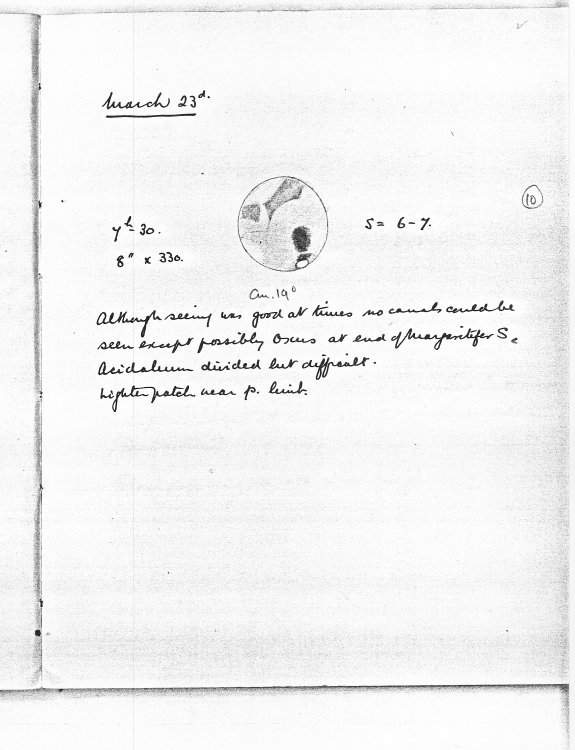 March 23d.
10
7h - 30.
S = 6 - 7.
8" x 330.
Cm. 19°
Although seeing was good at times no canals could be
seen except possibly Oxus at end of Margaritifer S.
Acidalium divided but difficult.
Lighter patch near p. limb.